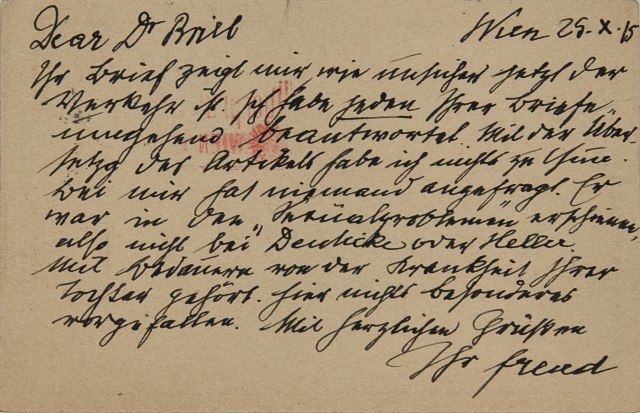 Dear Dr Brill Wien 25.X.15
Ihr Brief zeigt mir wie unsicher jetzt der
Verkehr ist. Ich habe jeden Ihrer Briefe
umgehend beantwortet. Mit der Über-
setzg des Artikels habe ich nichts zu thun.
Bei mir hat niemand angefragt. Er
war in den "Sexualproblemen" erschienen,
also nicht bei Deuticke oder Heller.
Mit Bedauern von der Krankheit Ihrer
Tochter gehört. Hier nichts besonderes
vorgefallen. Mit herzlichen Grüßen
Ihr Freud